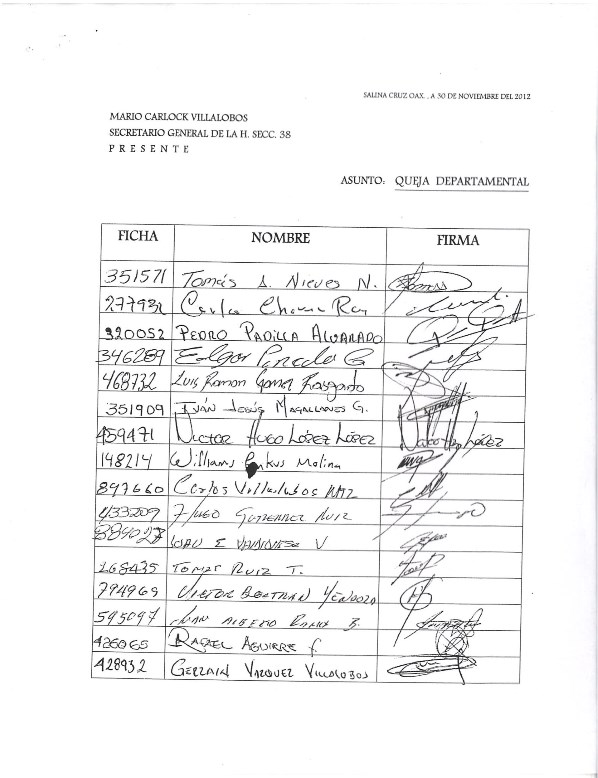 SALINA CRUZ OAX. , A 30 DE NOVIEMBRE DEL 2012
MARIO CARLOCK VILLALOBOS
SECRETARIO GENERAL DE LA H. SECC. 38
P R E S E N T E
ASUNTO: QUEJA DEPARTAMENTAL
FICHA NOMBRE FIRMA
351571 Tomás A. Nieves N.
277932 Carlos
320052 PEDRO PADILLA ALVARADO
346289 Edgar Pineda G.
468732 Luis Ramon Gomez
351909 IVÁN JESÚS MAGALLANES G.
459471 VICTOR HUGO LÓPEZ LÓPEZ
148214 Williams Molina
897660 Carlos Villalobos
433209 HUGO GUTIERREZ RUIZ
V
268435 TOMAS RUIZ T.
794969 VICTOR BELTRAN MENDOZA
595097 JUAN ALBERTO B.
426065 RAFAEL AGUIRRE
428932 GERZAIN VAZQUEZ VILLALOBOS